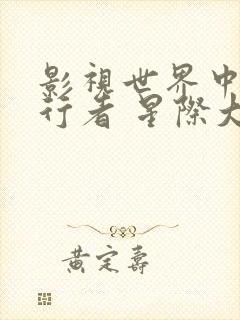 影視世界中
行者 星際大
黃定壽